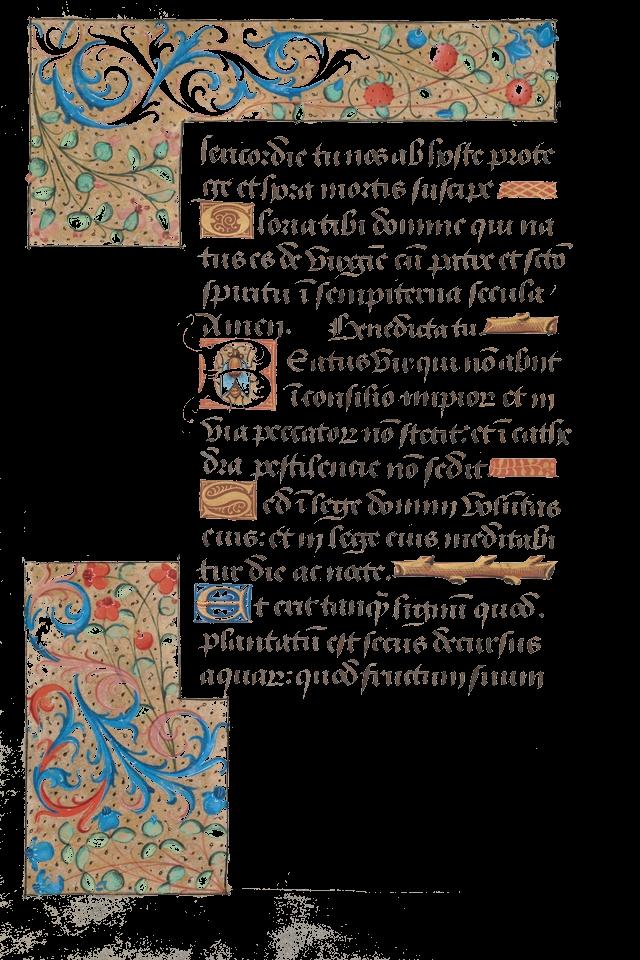 sericordie tu nos ab hoste prote
ge et hora mortis suscipe
Gloria tibi domine qui na
tus es de virgīe cū patre et scō
spiritu ī sempiterna secula
Amen. Benedicta tu
Beatus vir qui nō abiit
ī consilio impioꝝ et in
via peccatoꝝ nō stetit: et ī cathe
dra pestilencie nō sedit
Sed ī lege domini volūtas
eius: et in lege eius meditabi
tur die ac nocte.
Et erit tanqꝫ lignū quod
plantatū est secus decursus
aquaꝝ: quod fructum suum